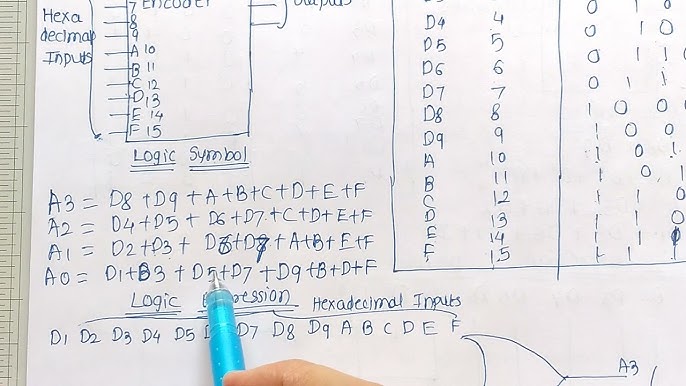 7 Encoder
8
Hexa
decimal
Inputs
9
A 10
B 11
C 12
D 13
E 14
F 15
Logic Symbol
A3 = D8 + D9 + A + B + C + D + E + F
A2 = D4 + D5 + D6 + D7 + C + D + E + F
A1 = D2 + D3 + D6 + D7 + A + B + E + F
A0 = D1 + D3 + D5 + D7 + D9 + B + D + F
Logic
Hexadecimal Inputs
D1 D2 D3 D4 D5 D7 D8 D9 A B C D E F
Outputs
D4 4 0 1 0
D5 5 0 1 0
D6 6 0 1 1
D7 7 0 1 1
D8 8 1 0 0
D9 9 1 0 0
A 10 1 0 1
B 11 1 0 1
C 12 1 1 0
D 13 1 1 0
E 14 1 1 1
F 15 1 1 1
A3